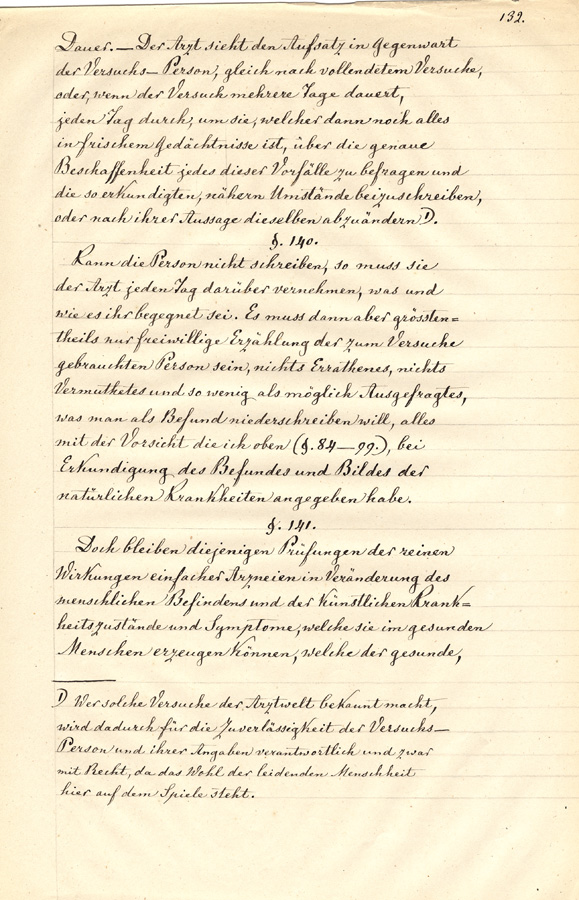 132.
Dauer. — Der Arzt sieht den Aufsatz in Gegenwart
der Versuchs-Person, gleich nach vollendetem Versuche,
oder, wenn der Versuch mehrere Tage dauert,
jeden Tag durch, um sie, welcher dann noch alles
in frischem Gedächtnisse ist, über die genaue
Beschaffenheit jedes dieser Vorfälle zu befragen und
die so erkundigten, nähern Umstände beizuschreiben,
oder nach ihrer Aussage dieselben abzuändern 1).
§. 140.
Kann die Person nicht schreiben, so muss sie
der Arzt jeden Tag darüber vernehmen, was und
wie es ihr begegnet sei. Es muss dann aber grössten=
theils nur freiwillige Erzählung der zum Versuche
gebrauchten Person sein, nichts Errathenes, nichts
Vermuthetes und so wenig als möglich Ausgefragtes,
was man als Befund niederschreiben will, alles
mit der Vorsicht die ich oben (§. 84—99.), bei
Erkundigung des Befundes und Bildes der
natürlichen Krankheiten angegeben habe.
§. 141.
Doch bleiben diejenigen Prüfungen der reinen
Wirkungen einfacher Arzneien in Veränderung des
menschlichen Befindens und der künstlichen Krank=
heitszustände und Symptome, welche sie im gesunden
Menschen erzeugen können, welche der gesunde,
1) Wer solche Versuche der Arztwelt bekannt macht,
wird dadurch für die Zuverlässigkeit der Versuchs-
Person und ihrer Angaben verantwortlich und zwar
mit Recht, da das Wohl der leidenden Menschheit
hier auf dem Spiele steht.